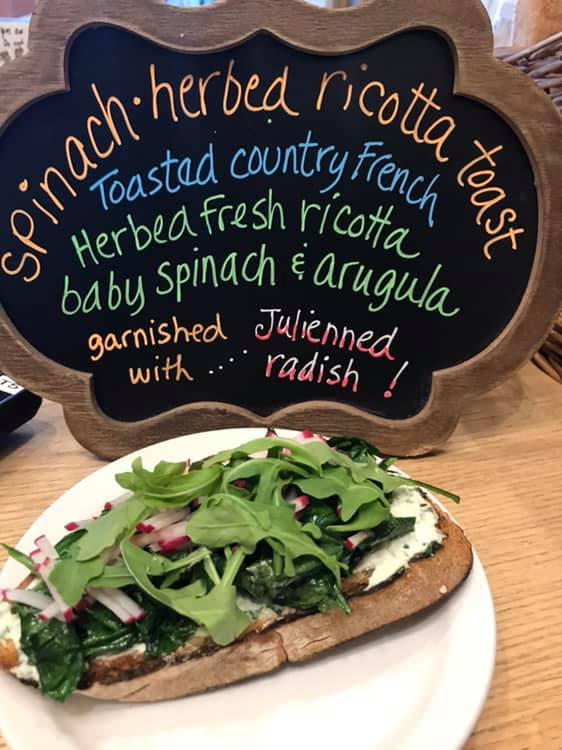 spinach·herbed ricotta toast
Toasted country French
Herbed fresh ricotta
baby spinach & arugula
garnished with .... Julienned radish!